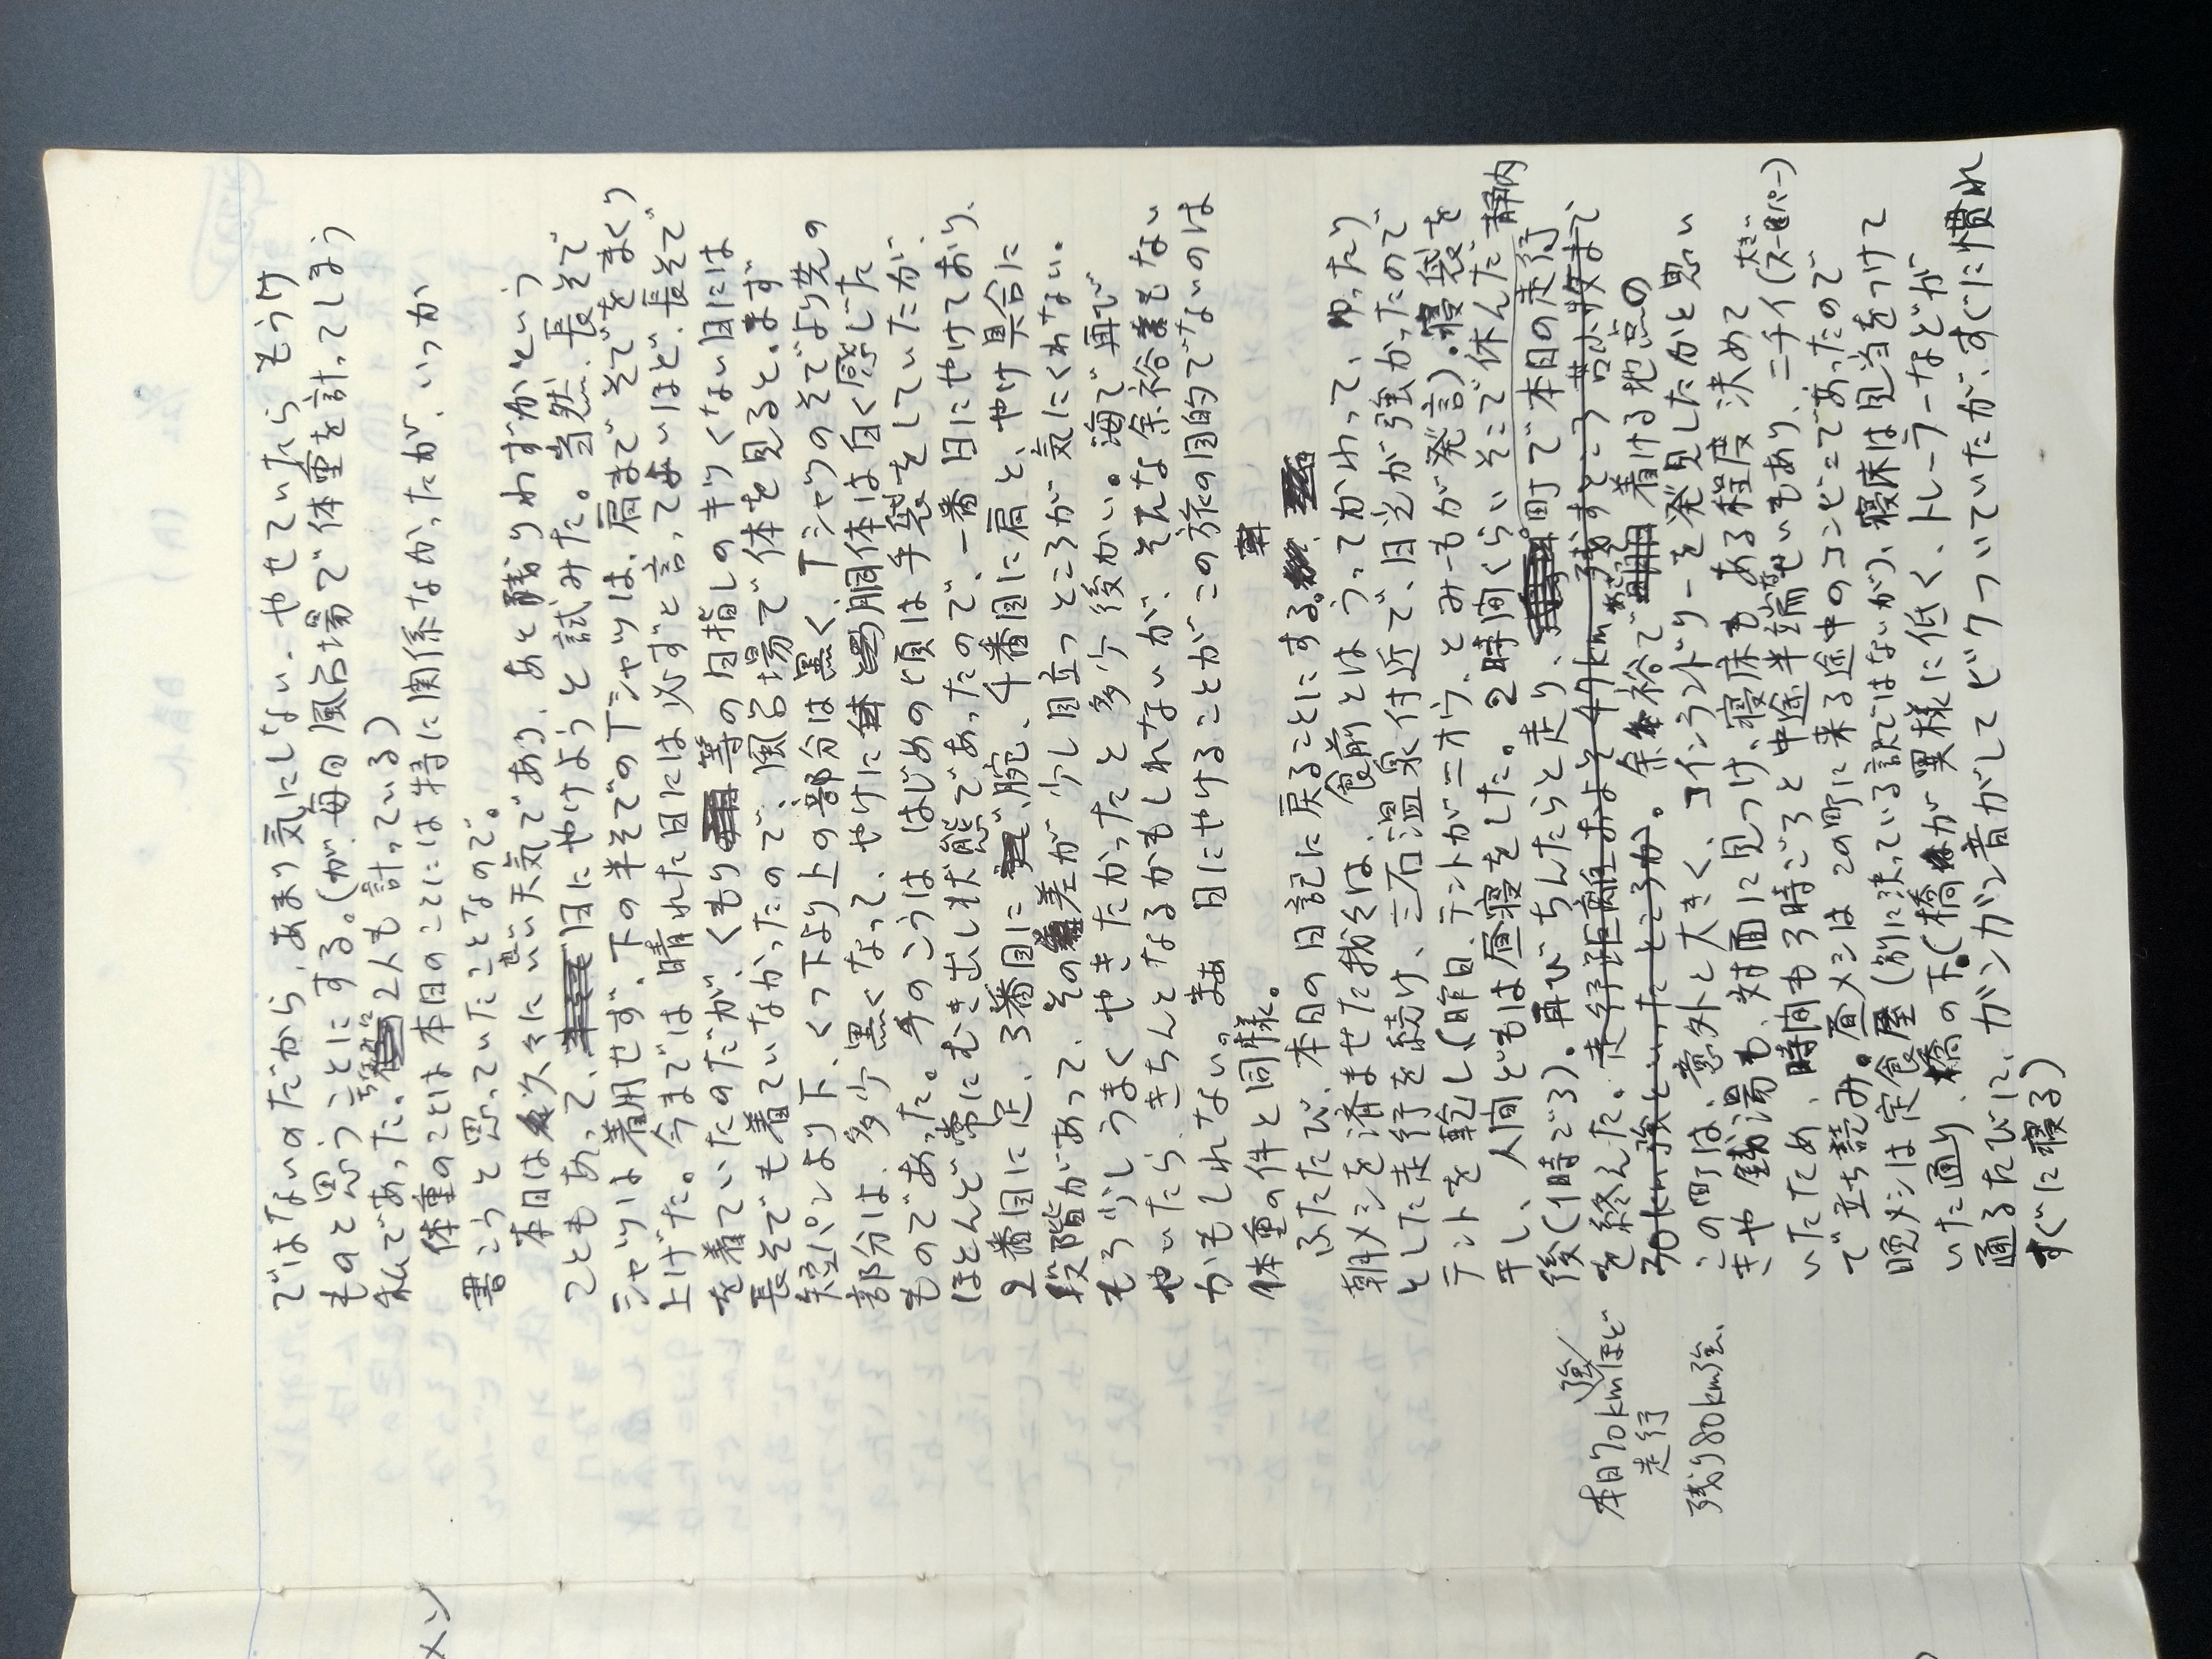 ではないのだから、あまり気にしない。やせていたら もうけ
ものと思うことにする。(が、毎日風呂場で体重を計ってしまう
私であった。2人も計っている)
体重のことは本日のことには特に関係なかったが、いつか
書こうと思っていたことなので。
本日は久々にいい天気であり、あと残りわずかという
こともあって、日にやけようと試みた。当然、長そで
シャツは着用せず、下の半そでのTシャツは、肩までそでをまくり
上げた。今までは晴れた日には必ずと言ってよいほど、長そで
を着ていたのだが、くもり等の日指しのキツくない日には
長そでも着ていなかったので、風呂場で体を見ると、まず
短パンより下、くつ下より上の部分は黒く、Tシャツのそでより先の
部分は、多少黒くなって、やけに胴体は白く感じた
ものであった。手のこうははじめの頃は手袋をしていたが、
ほとんど常にむき出し状態であったので、一番日にやけており、
2番目に足、3番目に腕、4番目に肩と、やけ具合に
段階があって、その差が少し目立つところが気にくわない。
もう少しうまくやきたかったと多少後かい。海で再び
やいたら、きちんとなるかもしれないが、そんな余裕もない
かもしれない。まあ 日にやけることがこの旅の目的でないのは
体重の件と同様。
ふたたび、本日の日記に戻ることにする。
朝メシを済ませた我々は、食前とはうってかわって、ゆったり
とした走行を続け、三石温泉付近で、日光が強かったので
テントを乾し、(昨日、テントがニオウ、とみーもが発言)。寝袋を
干し、人間どもは昼寝をした。2時間ぐらいそこで休んだ
後(1時ごろ)。再びちんたらと走り、静内町で本日の走行
を終えた。走行距離およそ47km 残すところ苫小牧まで
70km強といったところか。余裕で着ける地点の
この町は、意外と大きく、コインランドリーを発見したかと思い
きや 銭湯も、対面に見つけ、寝床も ある程度 決めて
いたため、時間も3時ごろと中途半端なせいもあり、ニチイ(大きいスーパー)
で立ち読み。昼メシはこの町に来る途中のコンビニであったので
晩メシは定食屋(別に決っている訳ではないが)、寝床は見当をつけて
いた通り、橋の下。(橋が異様に低く、トレーラーなどが
通るたびに、ガンガン音がしてビクついていたが、すぐに慣れ
すぐに寝る)
本日70km強ほど
走行
残り80km強、
メン